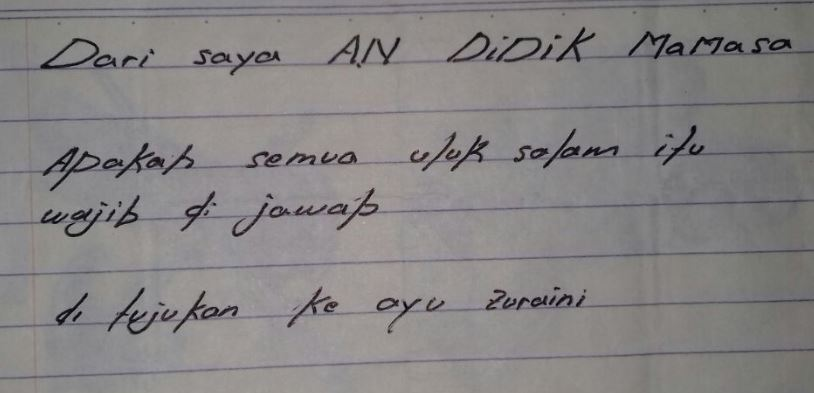 Dari saya A.N DiDiK MaMasa
Apakah semua uluk salam itu
wajib di jawab
di tujukan ke ayu zuraini